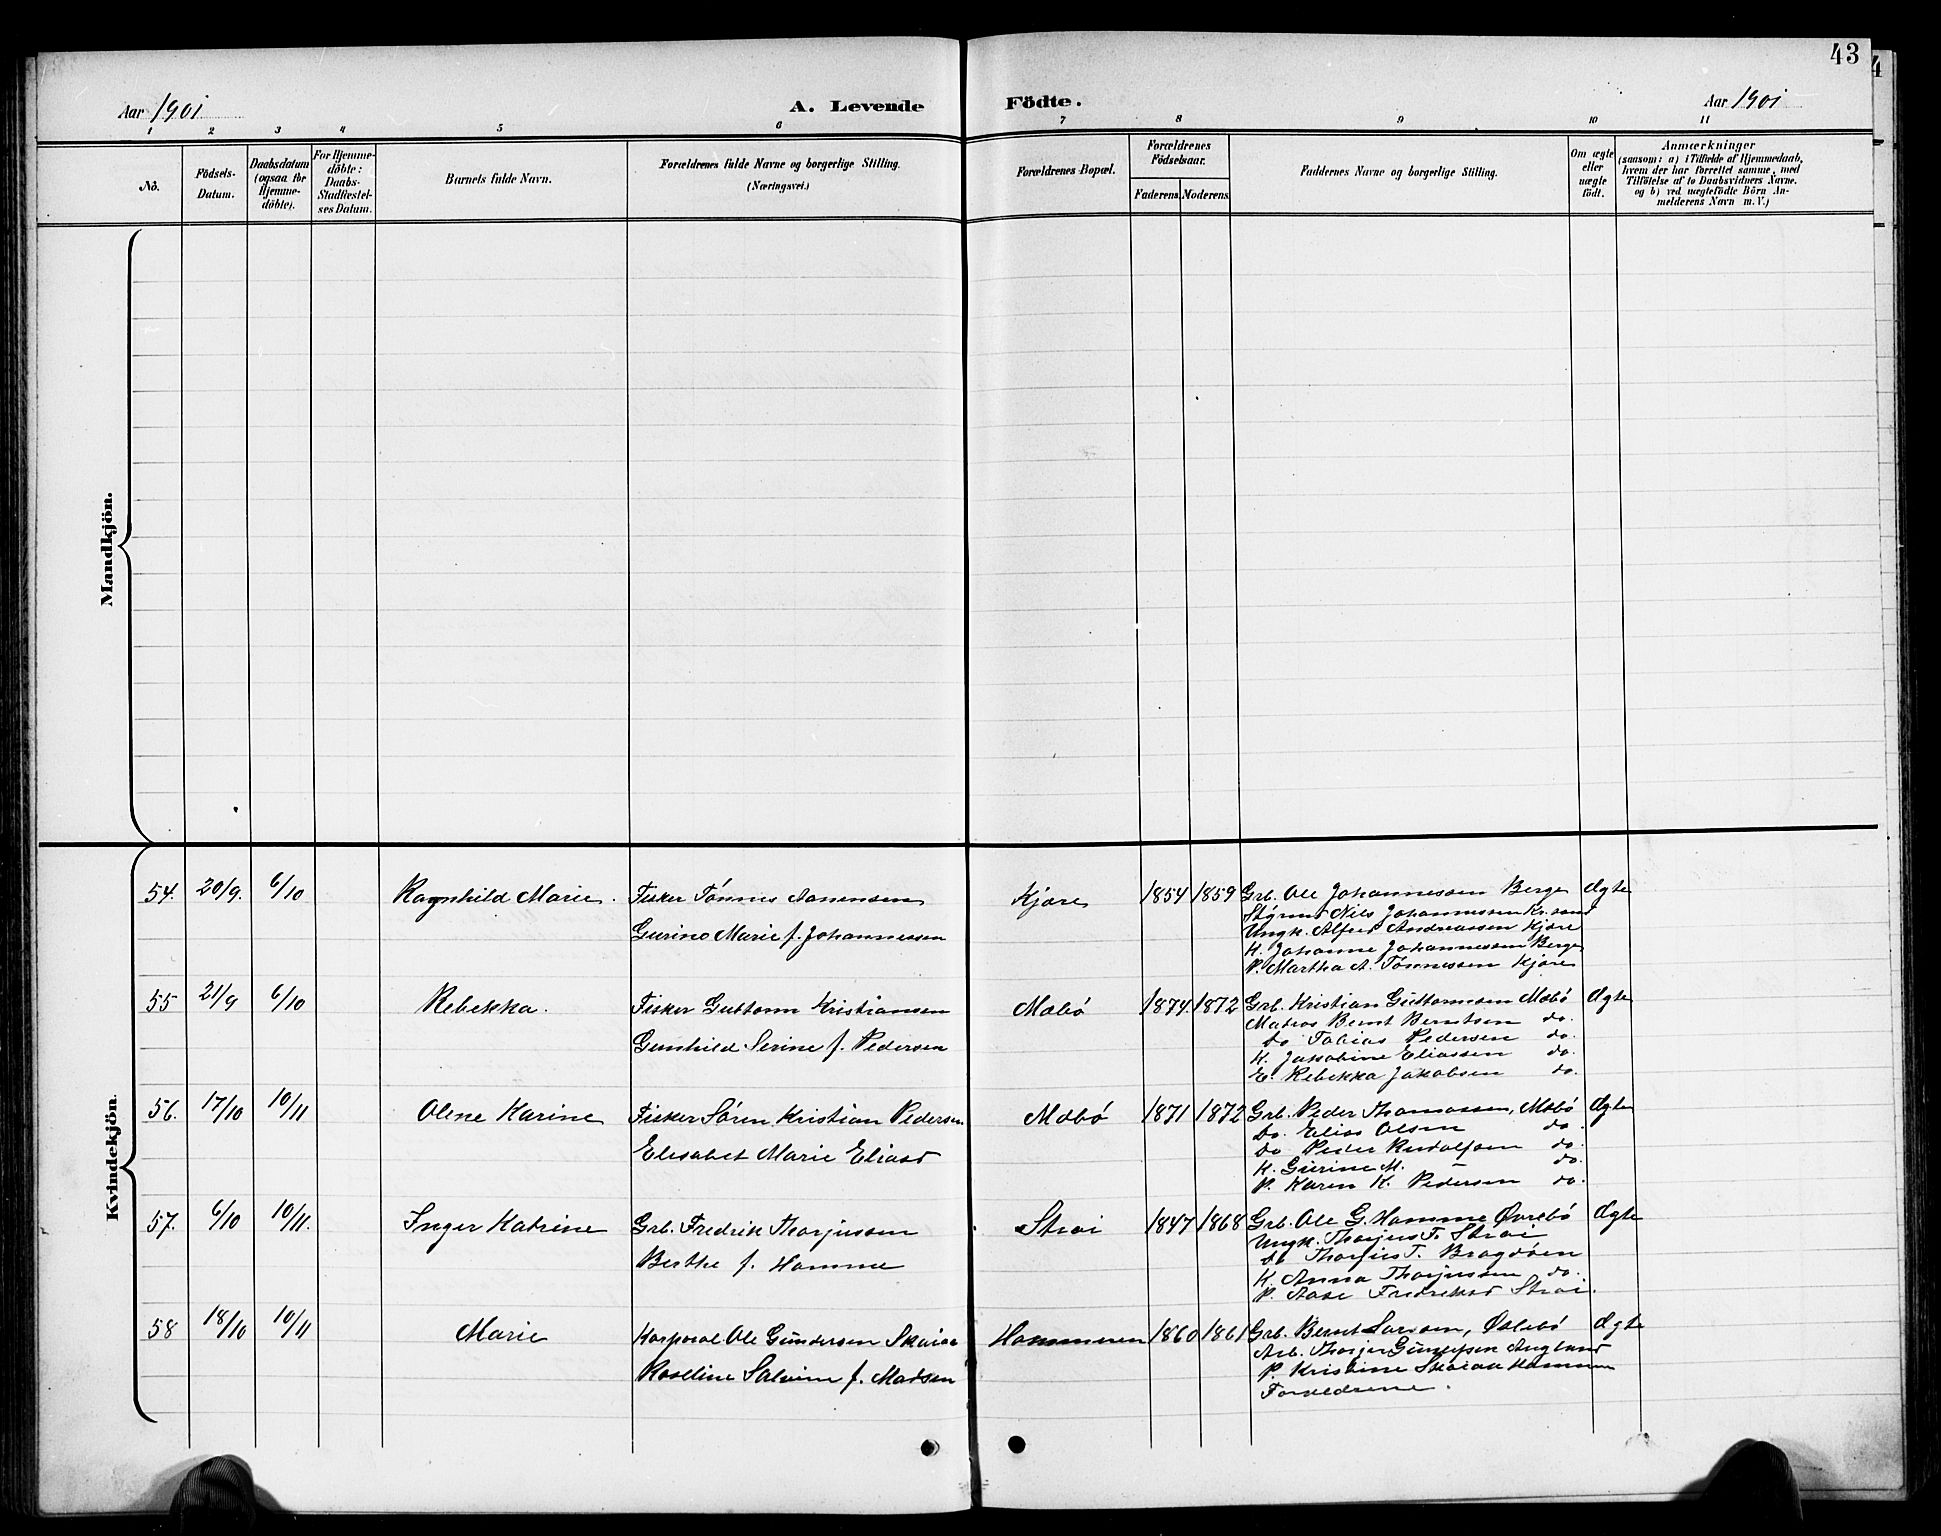 43
4
Aar 1901
A. Levende
Födte.
Aar 1901
1 2 3 4 5 6 7 8 9 10 11
No.
Födsels-
Datum.
Daabsdatum
(ogsaa for
Hjemme-
döbte).
For Hjemme-
döbte:
Daabs-
Stadfæstel-
ses Datum.
Barnets fulde Navn.
Forældrenes fulde Navne og borgerlige Stilling.
(Næringsvei.)
Forældrenes Bopæl.
Forældrenes
Födselsaar.
Faderens. Moderens.
Faddernes Navne og borgerlige Stilling.
Om ægte
eller
uægte
födt.
Anmærkninger
(saasom: a) i Tilfælde af Hjemmedaab,
hvem der har forrettet samme, med
Tilföielse af to Daabsvidners Navne.
og b) ved uægtefödte Börn An-
melderens Navn m. V.)
Mandkjön.
Kvindekjön.
54. 20/9. 6/10 Ragnhild Marie. Fisker Tönnes Aanensen
Gurine Marie f. Johannessen
Kjære 1854 1859 Grb. Ole Johannessen Berge Ægte
Styrmd Nils Johannessen Kr.sand
Ungk. Alfred Andreassen Kjære
K. Johanne Johannessen Berge
P. Martha A. Tönnessen Kjære
55 21/9 6/10 Rebekka. Fisker Guttorm Kristiansen
Gunhild Serine f. Pedersen
Mæbö 1874. 1872 Grb. Kristian Guttormsen Mæbö Ægte
Matros Bernt Berntsen do.
Do Tobias Pedersen do.
K. Jakobine Eliassen do.
E. Rebekka Jakobsen do.
56. 17/10 10/11 Olene Karine Fisker Sören Kristian Pedersen
Elisabet Marie Eliasd
Mæbö 1871 1872 Grb. Peder Thomassen, Mæbö Ægte
Do. Elias Olsen do.
Do Peder Rudolfsen do.
K. Gurine M. do.
P. Karen K. Pedersen do.
57. 6/10 10/11. Inger Katrine Grb. Fredrik Thorjussen
Berthe f. Homme
Strai 1847 1868 Grb. Ole G. Homme Øvrebö Ægte
Ungk. Thorjus F. Strai
Do Thorjus T. Bragdöen
K. Anna Thorjussen do.
P. Aase Fredriksd Strai.
58 18/10 10/11 Marie Korporal Ole Gundersen Skaiaa
Roseline Salvine f. Madsen
Hammeren 1860 1861 Grb. Bernt Larsen, Øvlebö Ægte
Arb. Thorjer Gunufsen Augland
P. Kristine Skaiaa Hammeren
Forældrene.